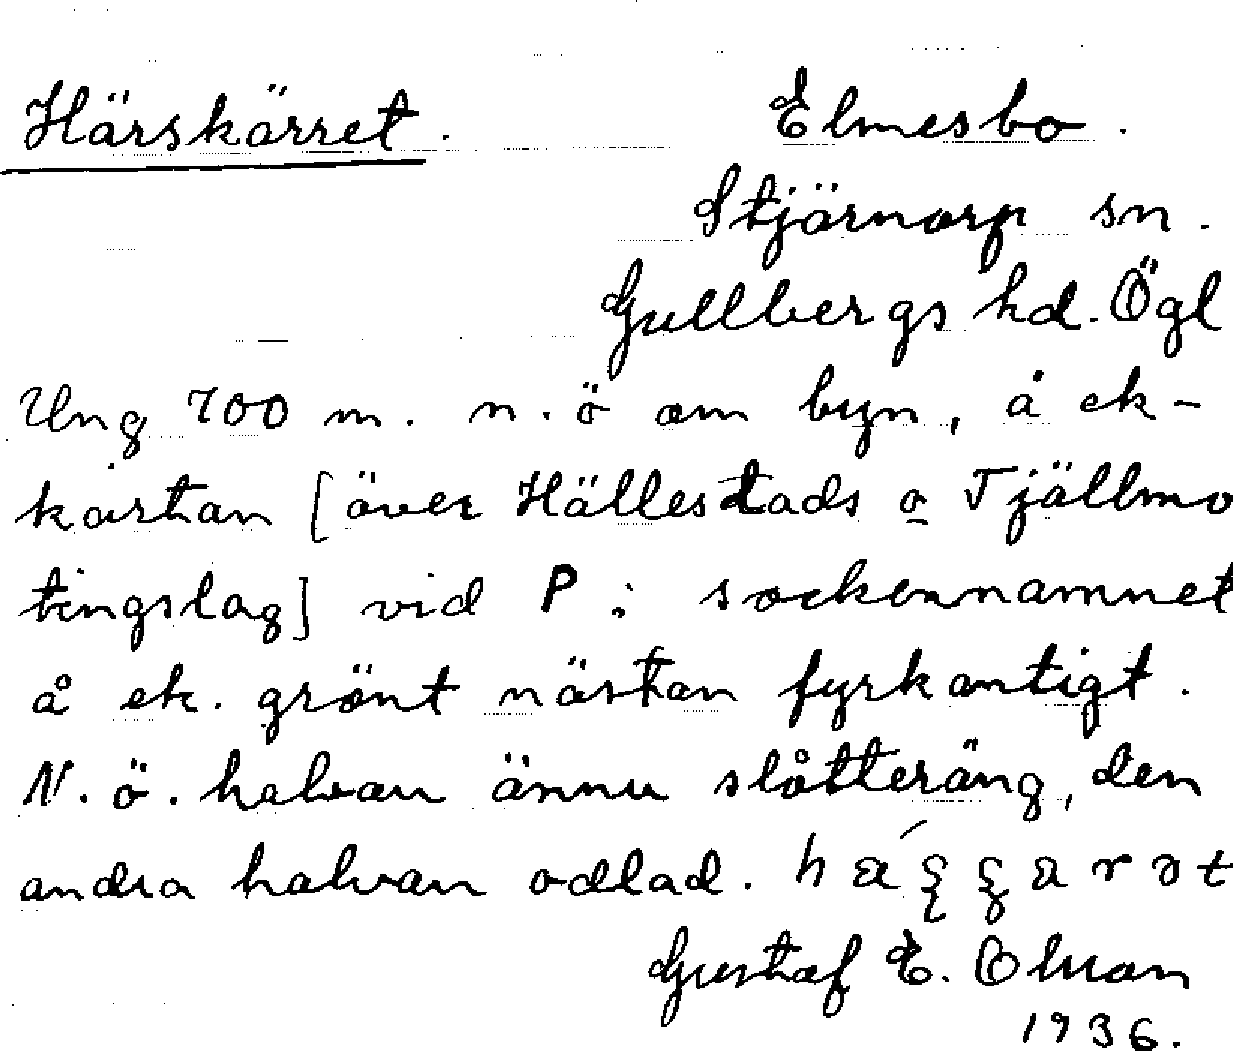 Härskärret. Elmesbo.
Stjärnorp sn.
Gullbergs hd. Ögl
Ung 700 m. n.ö om byn, å ek-
kartan [över Hällestads o Tjällmo
tingslag] vid P i sockennamnet
å ek. grönt nästan fyrkantigt.
N.ö. halvan ännu slåtteräng, den
andra halvan odlad.
Gustaf E. Olsson
1936.